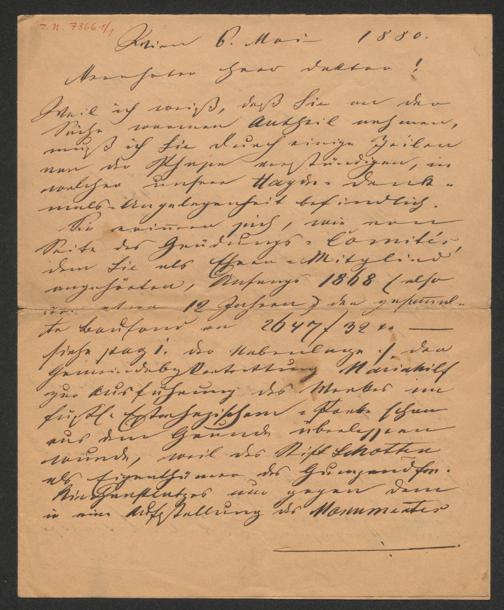 I. N. 7366 1/1
Wien 6. Mai 1880.
Verehrter Herr Doktor!
Weil ich weiß, daß Sie an der
Sache warmen Antheil nehmen,
muß ich Sie durch einige Zeilen
von der Phase verständigen, in
welcher unsere Haydn-Denk-
mals-Angelegenheit befindlich.
Sie erinnern sich, wie von
Seite des Gründungs-Comités,
dem Sie als Ehren-Mitglied
angehörten, Anfangs 1868 (also
vor etwa 12 Jahren) der gesammel-
te Baufond an 2647 f 32 x. —
siehe pag 1. der Nebenlage / der
Gemeindebez Vertretung Mariahilf
zur Ausführung des Werkes im
fürstl. Esterhazischem-Parke schon
aus dem Grunde überlassen
wurde, weil das Stift Schotten
als Eigenthümer des Gumpendfr.
Kirchenplatzes nur gegen dem
in eine Aufstellung des Monumentes